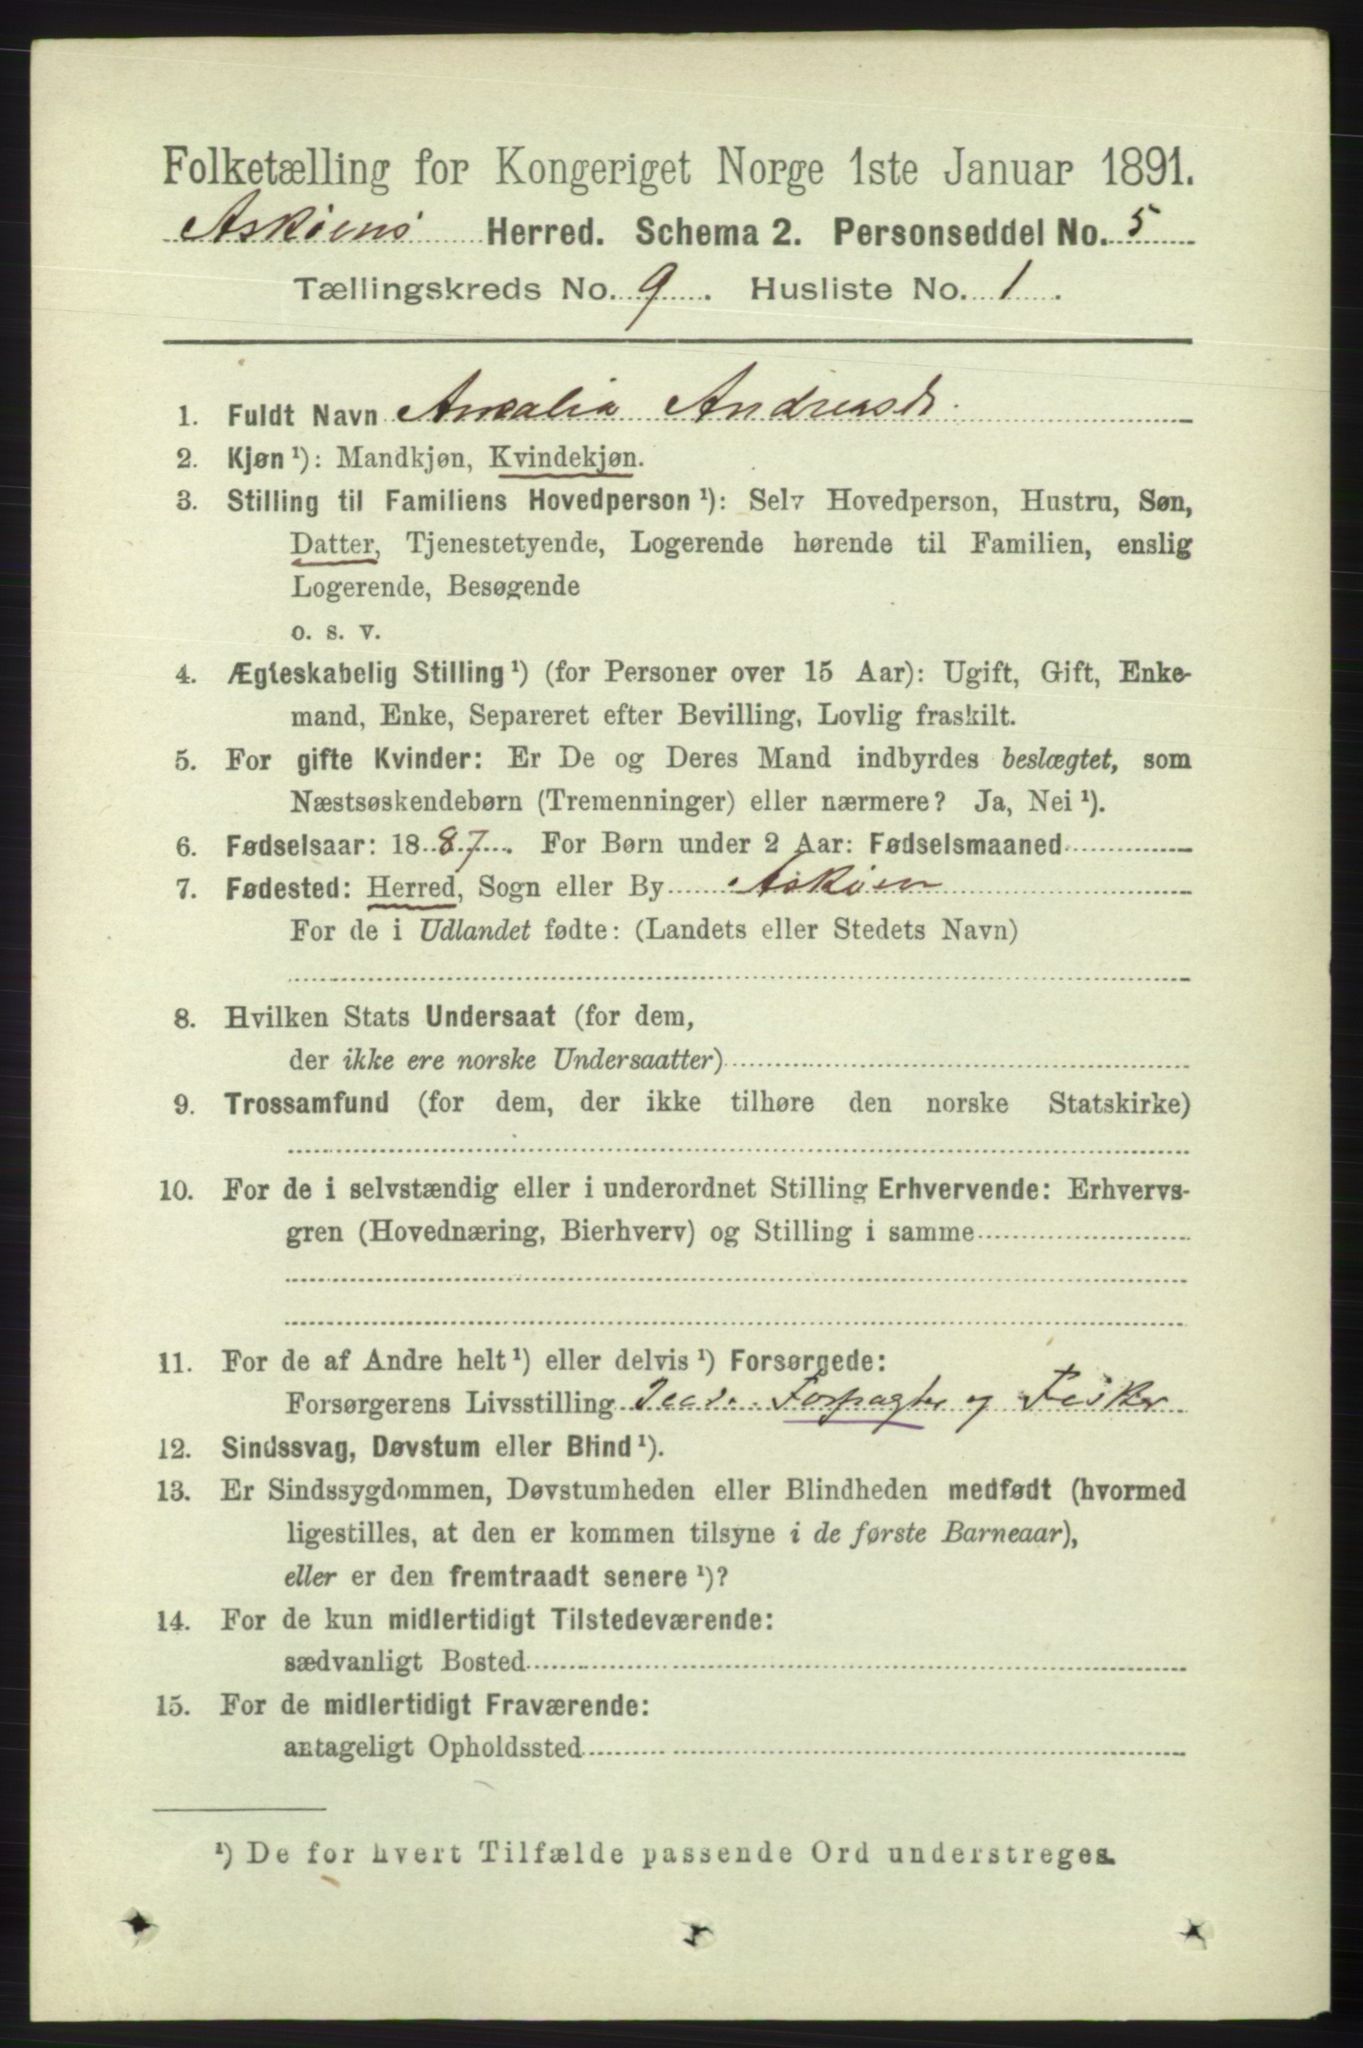 Folketælling for Kongeriget Norge 1ste Januar 1891.
Askøens Herred. Schema 2. Personseddel No. 5
Tællingskreds No. 9. Husliste No. 1.
1. Fuldt Navn Amalia Andreasd.
2. Kjøn ¹): Mandkjøn, Kvindekjøn.
3. Stilling til Familiens Hovedperson ¹): Selv Hovedperson, Hustru, Søn,
Datter, Tjenestetyende, Logerende hørende til Familien, enslig
Logerende, Besøgende
o. s. v.
4. Ægteskabelig Stilling ¹) (for Personer over 15 Aar): Ugift, Gift, Enke-
mand, Enke, Separeret efter Bevilling, Lovlig fraskilt.
5. For gifte Kvinder: Er De og Deres Mand indbyrdes beslægtet, som
Næstsøskendebørn (Tremenninger) eller nærmere? Ja, Nei ¹).
6. Fødselsaar: 1887. For Børn under 2 Aar: Fødselsmaaned
7. Fødested: Herred, Sogn eller By Askøen
For de i Udlandet fødte: (Landets eller Stedets Navn)
8. Hvilken Stats Undersaat (for dem,
der ikke ere norske Undersaatter)
9. Trossamfund (for dem, der ikke tilhøre den norske Statskirke)
10. For de i selvstændig eller i underordnet Stilling Erhvervende: Erhvervs-
gren (Hovednæring, Bierhverv) og Stilling i samme
11. For de af Andre helt ¹) eller delvis ¹) Forsørgede:
Forsørgerens Livsstilling Forpagter og Fisker
12. Sindssvag, Døvstum eller Blind ¹).
13. Er Sindssygdommen, Døvstumheden eller Blindheden medfødt (hvormed
ligestilles, at den er kommen tilsyne i de første Barneaar),
eller er den fremtraadt senere ¹)?
14. For de kun midlertidigt Tilstedeværende:
sædvanligt Bosted
15. For de midlertidigt Fraværende:
antageligt Opholdssted
¹) De for hvert Tilfælde passende Ord understreges.